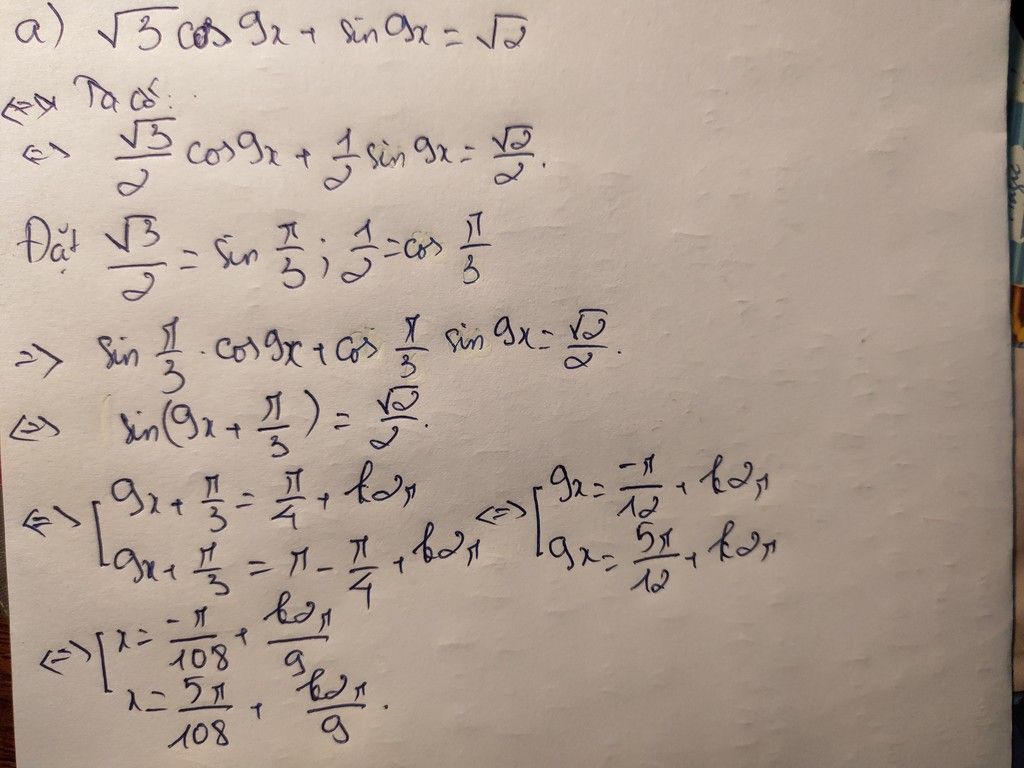 a) √3 cos 9x + sin 9x = √2
<=> Ta có:
<=> √3/2 cos 9x + 1/2 sin 9x = √2/2.
Đặt √3/2 = sin π/3 ; 1/2 = cos π/3
=> sin π/3 . cos 9x + cos π/3 sin 9x = √2/2.
<=> sin(9x + π/3) = √2/2.
<=> [ 9x + π/3 = π/4 + k2π <=> [ 9x = -π/12 + k2π
9x + π/3 = π - π/4 + k2π 9x = 5π/12 + k2π
<=> [ x = -π/108 + k2π/9
x = 5π/108 + k2π/9.